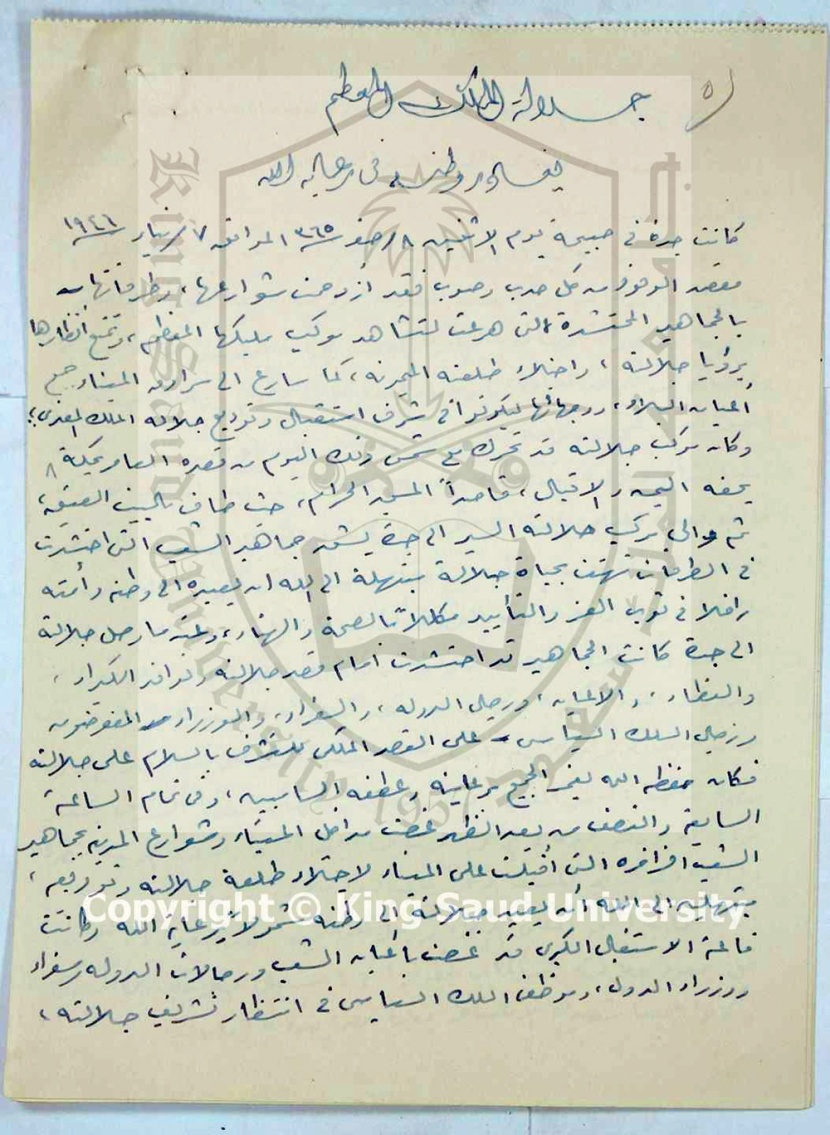 ٥)
جلالة الملك المعظم
يغادر وطنه في رعاية الله
كانت جدة في صبيحة يوم الاثنين ٨ صفر ٣٦٥ الموافق ٧ يناير ١٩٤٦
مقصد الوفود من كل حدب وصوب فقد ازدحمت شوارعها، وطرقاتها
بالجماهير المحتشدة التي هرعت لتشاهد موكب مليكها المعظم، وتمتع أنظارها
برؤيا جلالته، واجتلاء طلعته الميمونة، كما سارع الى سرادق الميناء جميع
أعيان البلاد، ووجهائها ليكونوا في شرف استقبال وتوديع جلالة الملك المفدى،
وكان موكب جلالته قد تحرك مع شمس ذلك اليوم من قصره العامر بمكة
يحفه اليمن والاقبال، قاصداً المسجد الحرام، حيث طاف بالبيت العتيق،
ثم والى موكب جلالته السير الى جدة يشق جماهير الشعب التي احتشدت
في الطرقات تهتف بحياة جلالة مبتهلة الى الله ان يعيده الى وطنه وأمته
رافلا في ثوب العز والتأييد مكللا بالصحة والهناء، وعندما وصل جلالته
الى جدة كانت الجماهير قد احتشدت أمام قصر جلالته وتوافد الكبراء،
والعظماء، والاعيان، ورجال الدولة، والسفراء، والوزراء المفوضون
ورجال السلك السياسي على القصر الملكي للتشرف بالسلام على جلالته
فكان حفظه الله يغمر الجميع برعايته وعطفه الساميين، وفي تمام الساعة
السابعة والنصف من بعد الظهر غصت مداخل الميناء وشوارع المدينة بجماهير
الشعب الزاخرة التي أقبلت على الميناء لاجتلاء طلعة جلالته وتوديعه،
مبتهلين الى الله أن يعيد جلالته الى وطنه مشمولا برعاية الله وكانت
قاعة الاستقبال الكبرى قد غصت بأعيان الشعب ورجالات الدولة وسفراء
ووزراء الدول، وموظفي السلك السياسي في انتظار تشريف جلالته،
King Saud University
1957
Copyright © King Saud University